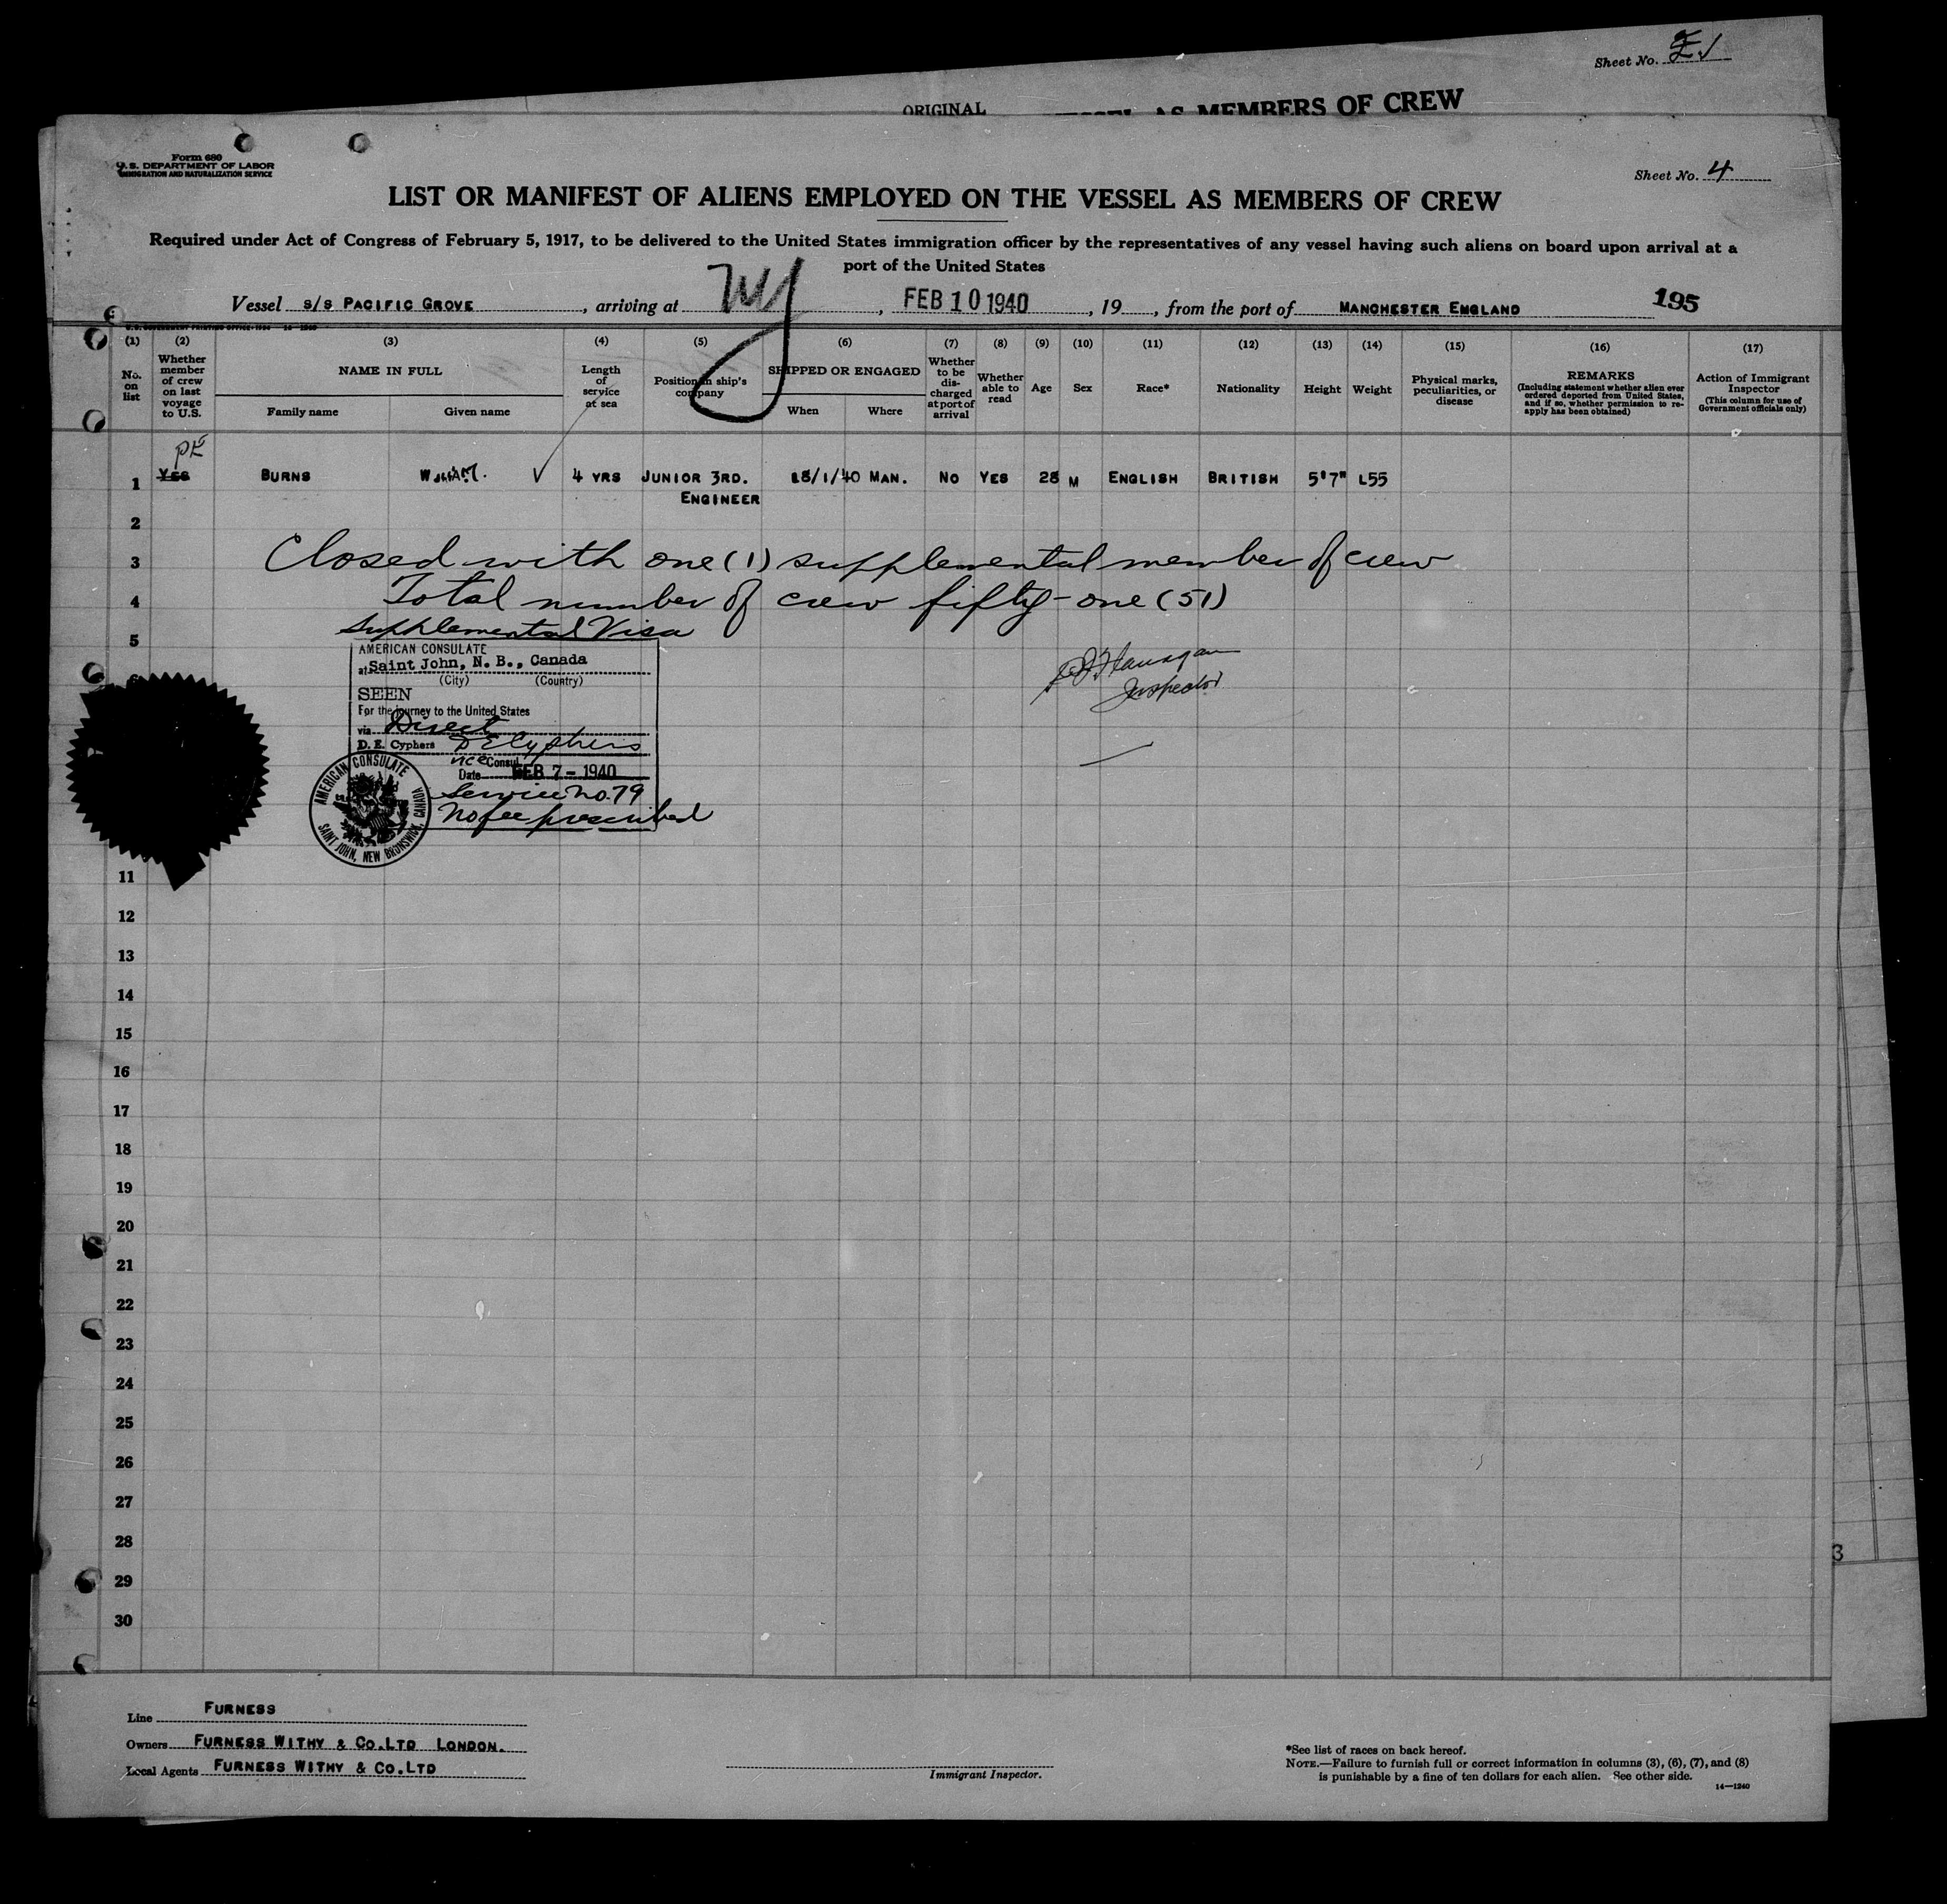 Sheet No. 
ORIGINAL
AS MEMBERS OF CREW
Form 680
U. S. DEPARTMENT OF LABOR
IMMIGRATION AND NATURALIZATION SERVICE
Sheet No. 4
LIST OR MANIFEST OF ALIENS EMPLOYED ON THE VESSEL AS MEMBERS OF CREW
Required under Act of Congress of February 5, 1917, to be delivered to the United States immigration officer by the representatives of any vessel having such aliens on board upon arrival at a
port of the United States
Vessel S/S PACIFIC GROVE, arriving at NY, FEB 10 1940, 19, from the port of MANCHESTER ENGLAND 195
(1) (2) (3) (4) (5) (6) (7) (8) (9) (10) (11) (12) (13) (14) (15) (16) (17)
No. on list
Whether member of crew on last voyage to U.S.
NAME IN FULL
Family name
Given name
Length of service at sea
Position in ship's company
SHIPPED OR ENGAGED
When
Where
Whether to be discharged at port of arrival
Whether able to read
Age
Sex
Race*
Nationality
Height
Weight
Physical marks, peculiarities, or disease
REMARKS
(Including statement whether alien ever ordered deported from United States, and if so, whether permission to reapply has been obtained)
Action of Immigrant Inspector
(This column for use of Government officials only)
PE
1 YES BURNS WILLIAM. 4 YRS JUNIOR 3RD. 18/1/40 MAN. NO YES 28 M ENGLISH BRITISH 5'7" 155
ENGINEER
2
3 Closed with one (1) supplemental member of crew
4 Total number of crew fifty-one (51)
5 Supplemental Visa
AMERICAN CONSULATE
at Saint John, N. B., Canada
(City) (Country)
SEEN
Flanagan
Inspector
For the journey to the United States
via Direct
D. E. Cyphers D E Cyphers
Vice Consul
Date FEB 7 - 1940
Service No. 79
No fee prescribed
AMERICAN CONSULATE
SAINT JOHN, NEW BRUNSWICK, CANADA
11
12
13
14
15
16
17
18
19
20
21
22
23
24
25
26
27
28
29
30
3
Line FURNESS
Owners FURNESS WITHY & CO.LTD LONDON.
Local Agents FURNESS WITHY & CO.LTD
Immigrant Inspector.
*See list of races on back hereof.
NOTE.—Failure to furnish full or correct information in columns (3), (6), (7), and (8)
is punishable by a fine of ten dollars for each alien. See other side.
14—1240